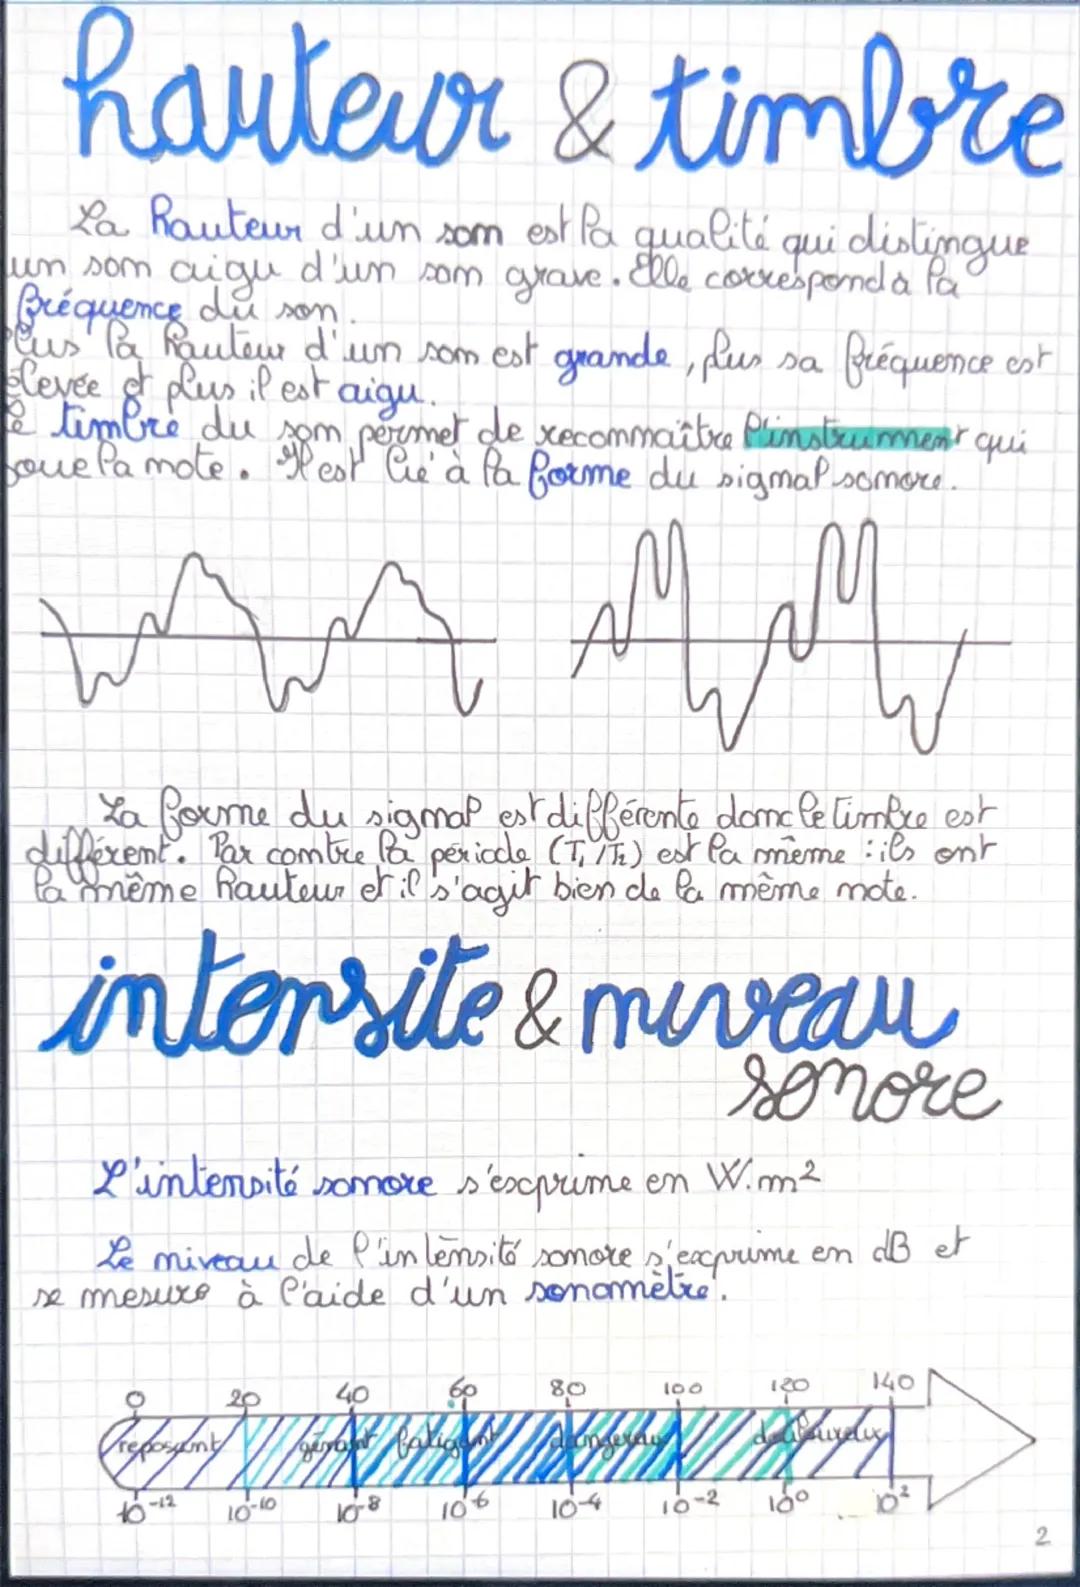 hauteur & timbre
La hauteur d'un son est la qualité qui distingue
un son aigu d'un son grave. Elle correspond à la
fréquence du son.
Plus la hauteur d'un son est grande, plus sa fréquence est
élevée et plus il est aigu.
Le timbre du son permet de reconnaître l'instrument qui
joue la note. Il est lié à la forme du signal sonore.
La forme du signal est différente donc le timbre est
différent. Par contre la période (T1/T2) est la même : ils ont
la même hauteur et il s'agit bien de la même note.
intensite & niveau
sonore
L'intensité sonore s'exprime en W.m²
Le niveau de l'intensité sonore s'exprime en dB et
se mesure à l'aide d'un sonomètre.
0 20 40 60 80 100 120 140
reposant gênant fatigant dangereux douloureux
10⁻¹² 10⁻¹⁰ 10⁻⁸ 10⁻⁶ 10⁻⁴ 10⁻² 10⁰ 10²
2